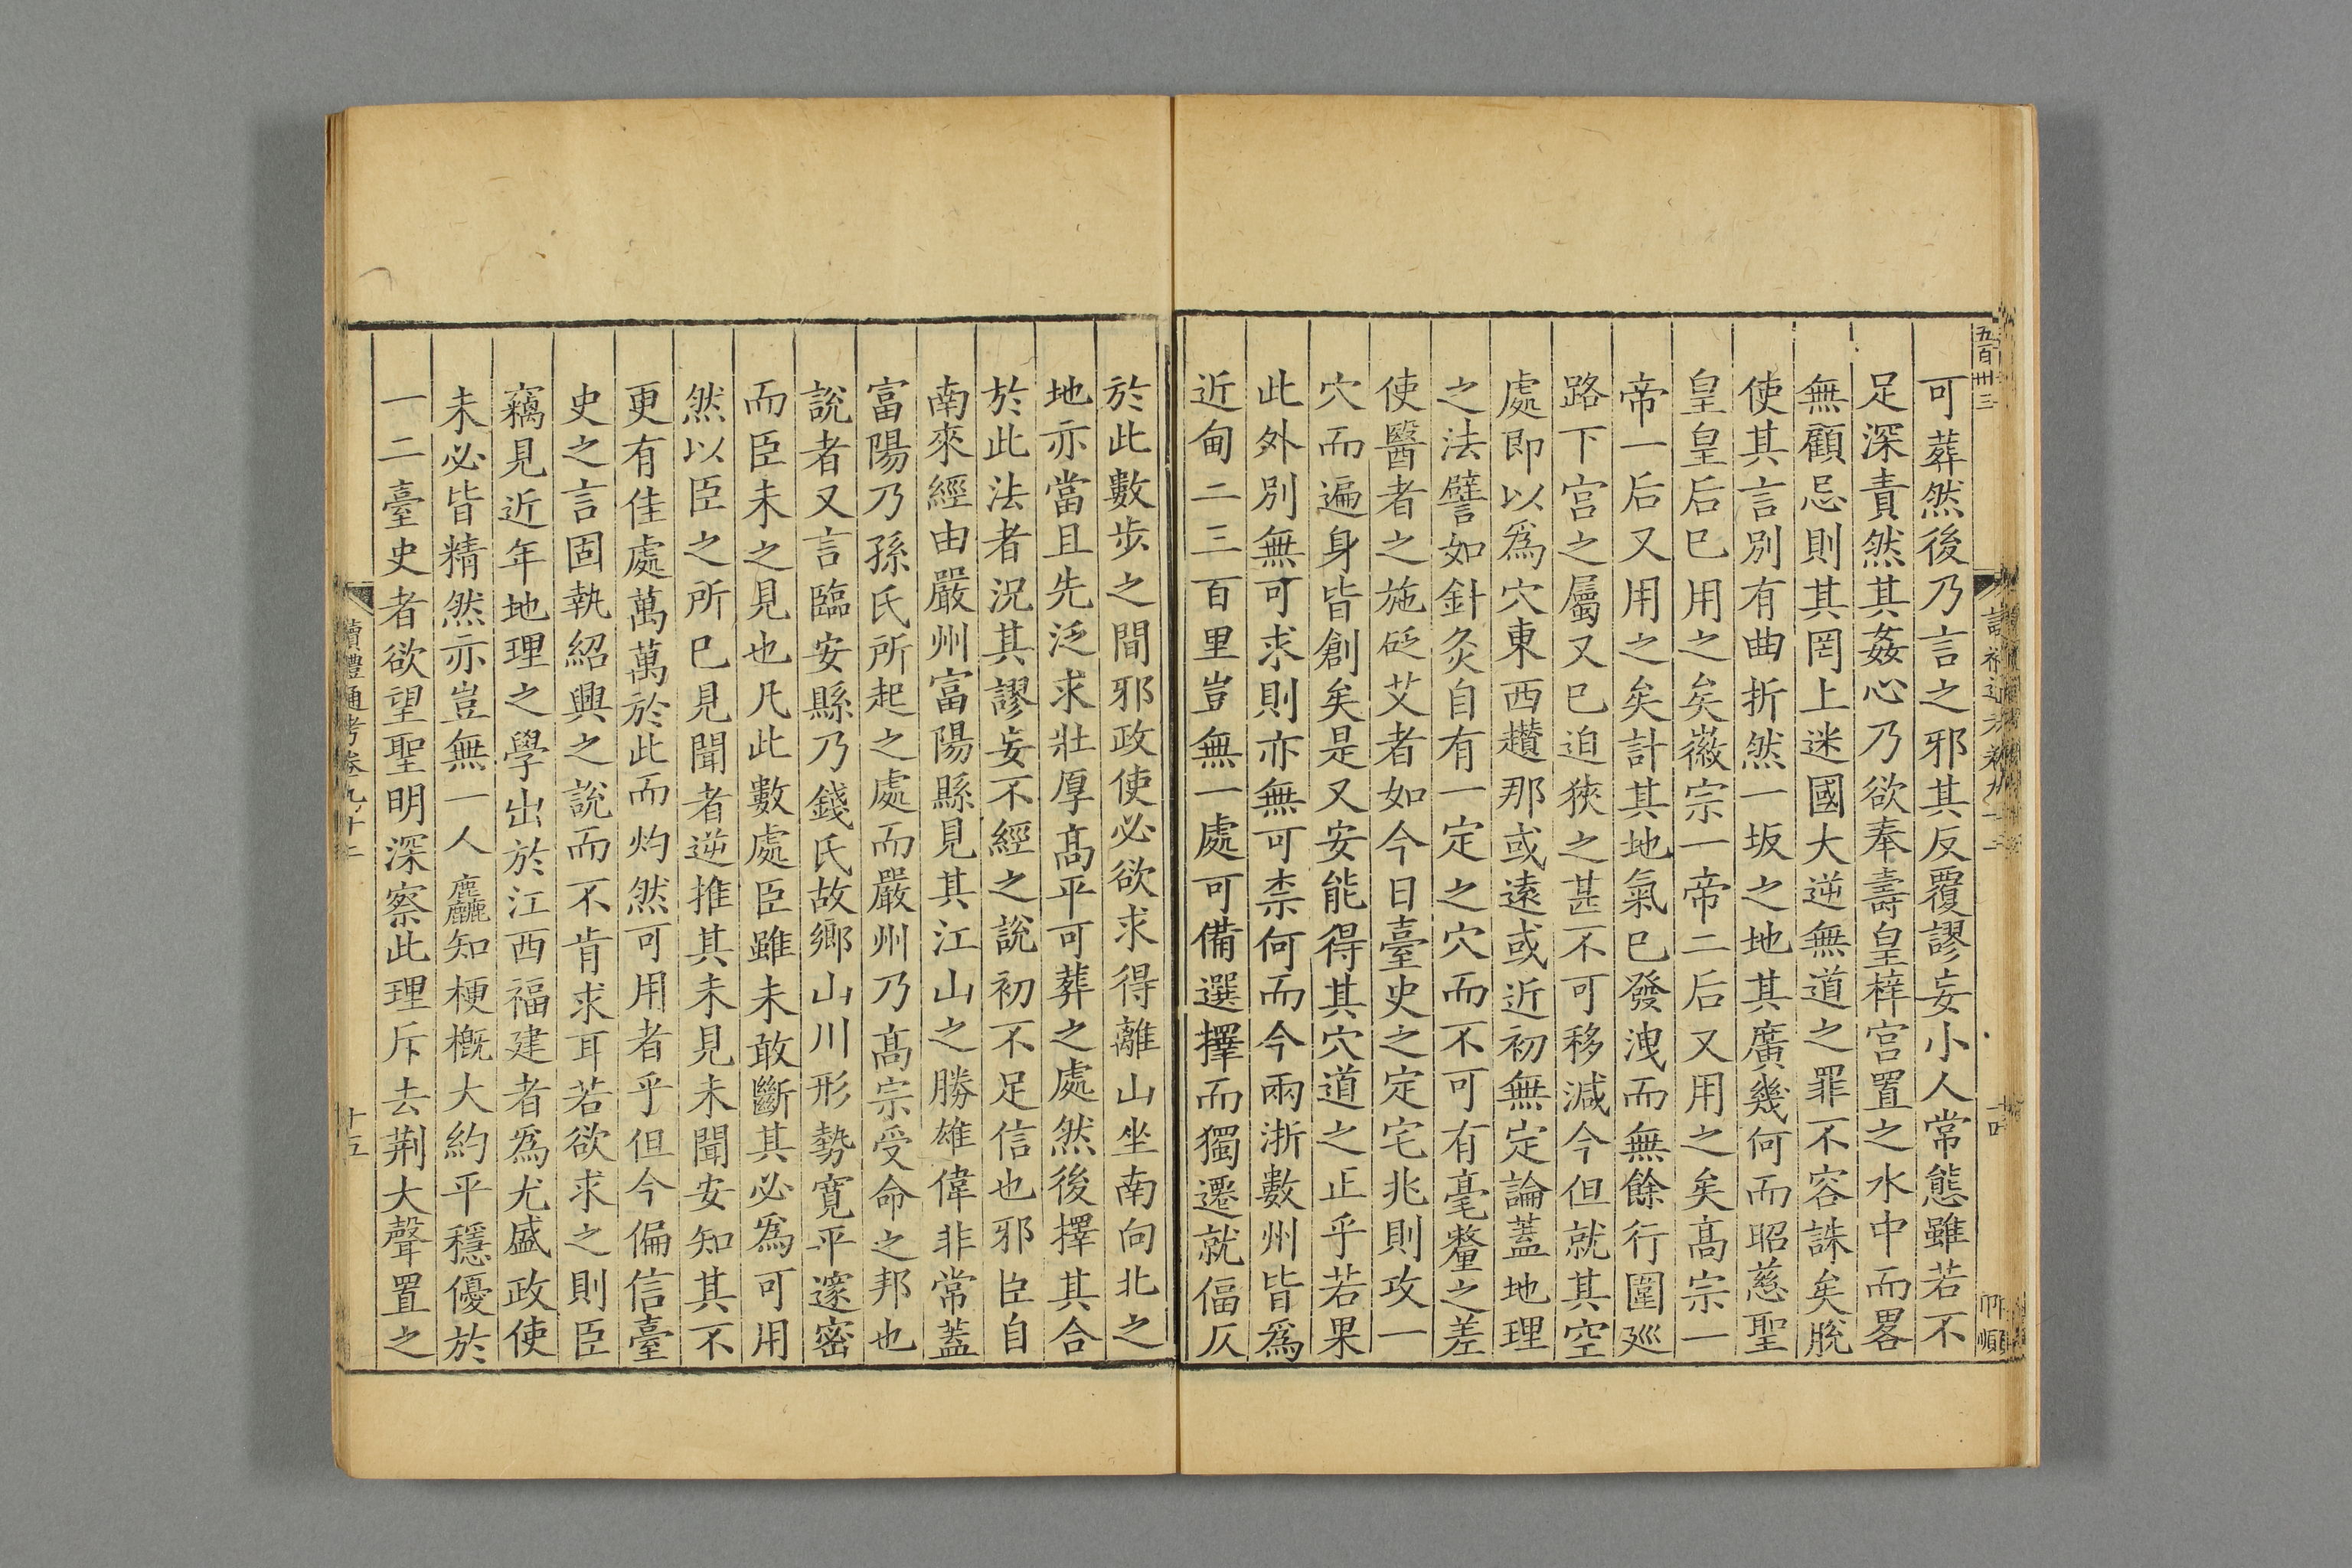 五百卅三
可葬然後乃言之邪其反覆謬妄小人常態雖若不
足深責然其姦心乃欲奉壽皇梓宮置之水中而畧
無顧忌則其罔上迷國大逆無道之罪不容誅矣脫
使其言別有曲折然一坂之地其廣幾何而昭慈聖
皇皇后巳用之矣徽宗一帝二后又用之矣髙宗一
帝一后又用之矣計其地氣巳發洩而無餘行圍廵
路下宫之屬又巳迫狹之甚不可移減今但就其空
處即以爲穴東西趲那或逺或近初無定論蓋地理
之法譬如針灸自有一定之穴而不可有毫釐之差
使醫者之施砭艾者如今日臺史之定宅兆則攻一
穴而遍身皆創矣是又安能得其穴道之正乎若果
此外別無可求則亦無可柰何而今兩浙數州皆爲
近甸二三百里豈無一處可備選擇而獨遷就偪仄
於此數步之間邪政使必欲求得離山坐南向北之
地亦當且先泛求壯厚髙平可葬之處然後擇其合
於此法者況其謬妄不經之說初不足信也邪臣自
南來經由嚴州富陽縣見其江山之勝雄偉非常蓋
富陽乃孫氏所起之處而嚴州乃髙宗受命之邦也
說者又言臨安縣乃錢氏故鄉山川形勢寛平邃密
而臣未之見也凡此數處臣雖未敢斷其必爲可用
然以臣之所巳見聞者逆推其未見未聞安知其不
更有佳處萬萬於此而灼然可用者乎但今偏信臺
史之言固執紹興之說而不肯求耳若欲求之則臣
竊見近年地理之學出於江西福建者爲尤盛政使
未必皆精然亦豈無一人麤知梗概大約平穩優於
一二臺史者欲望聖明深察此理斥去荆大聲置之
讀禮通考卷九十二
十五